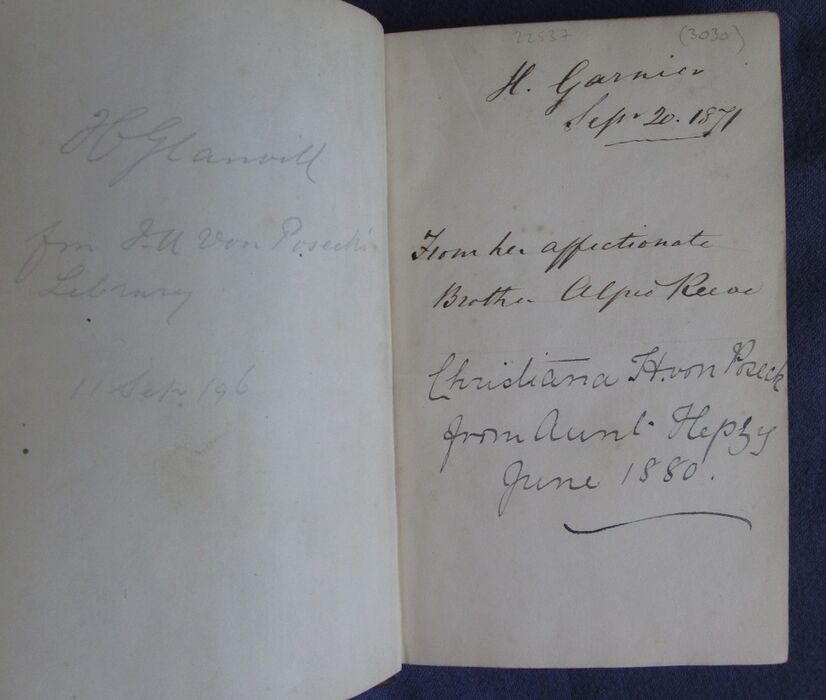 H Glanvill
fm J.A Von Poseck's
Library
11 Sep 196
22537
(3030)
H. Garnier
Sepr 20. 1871
From her affectionate
Brother Alfred Reeve
Christiana H. von Poseck
from Aunt Hepzy
June 1880.